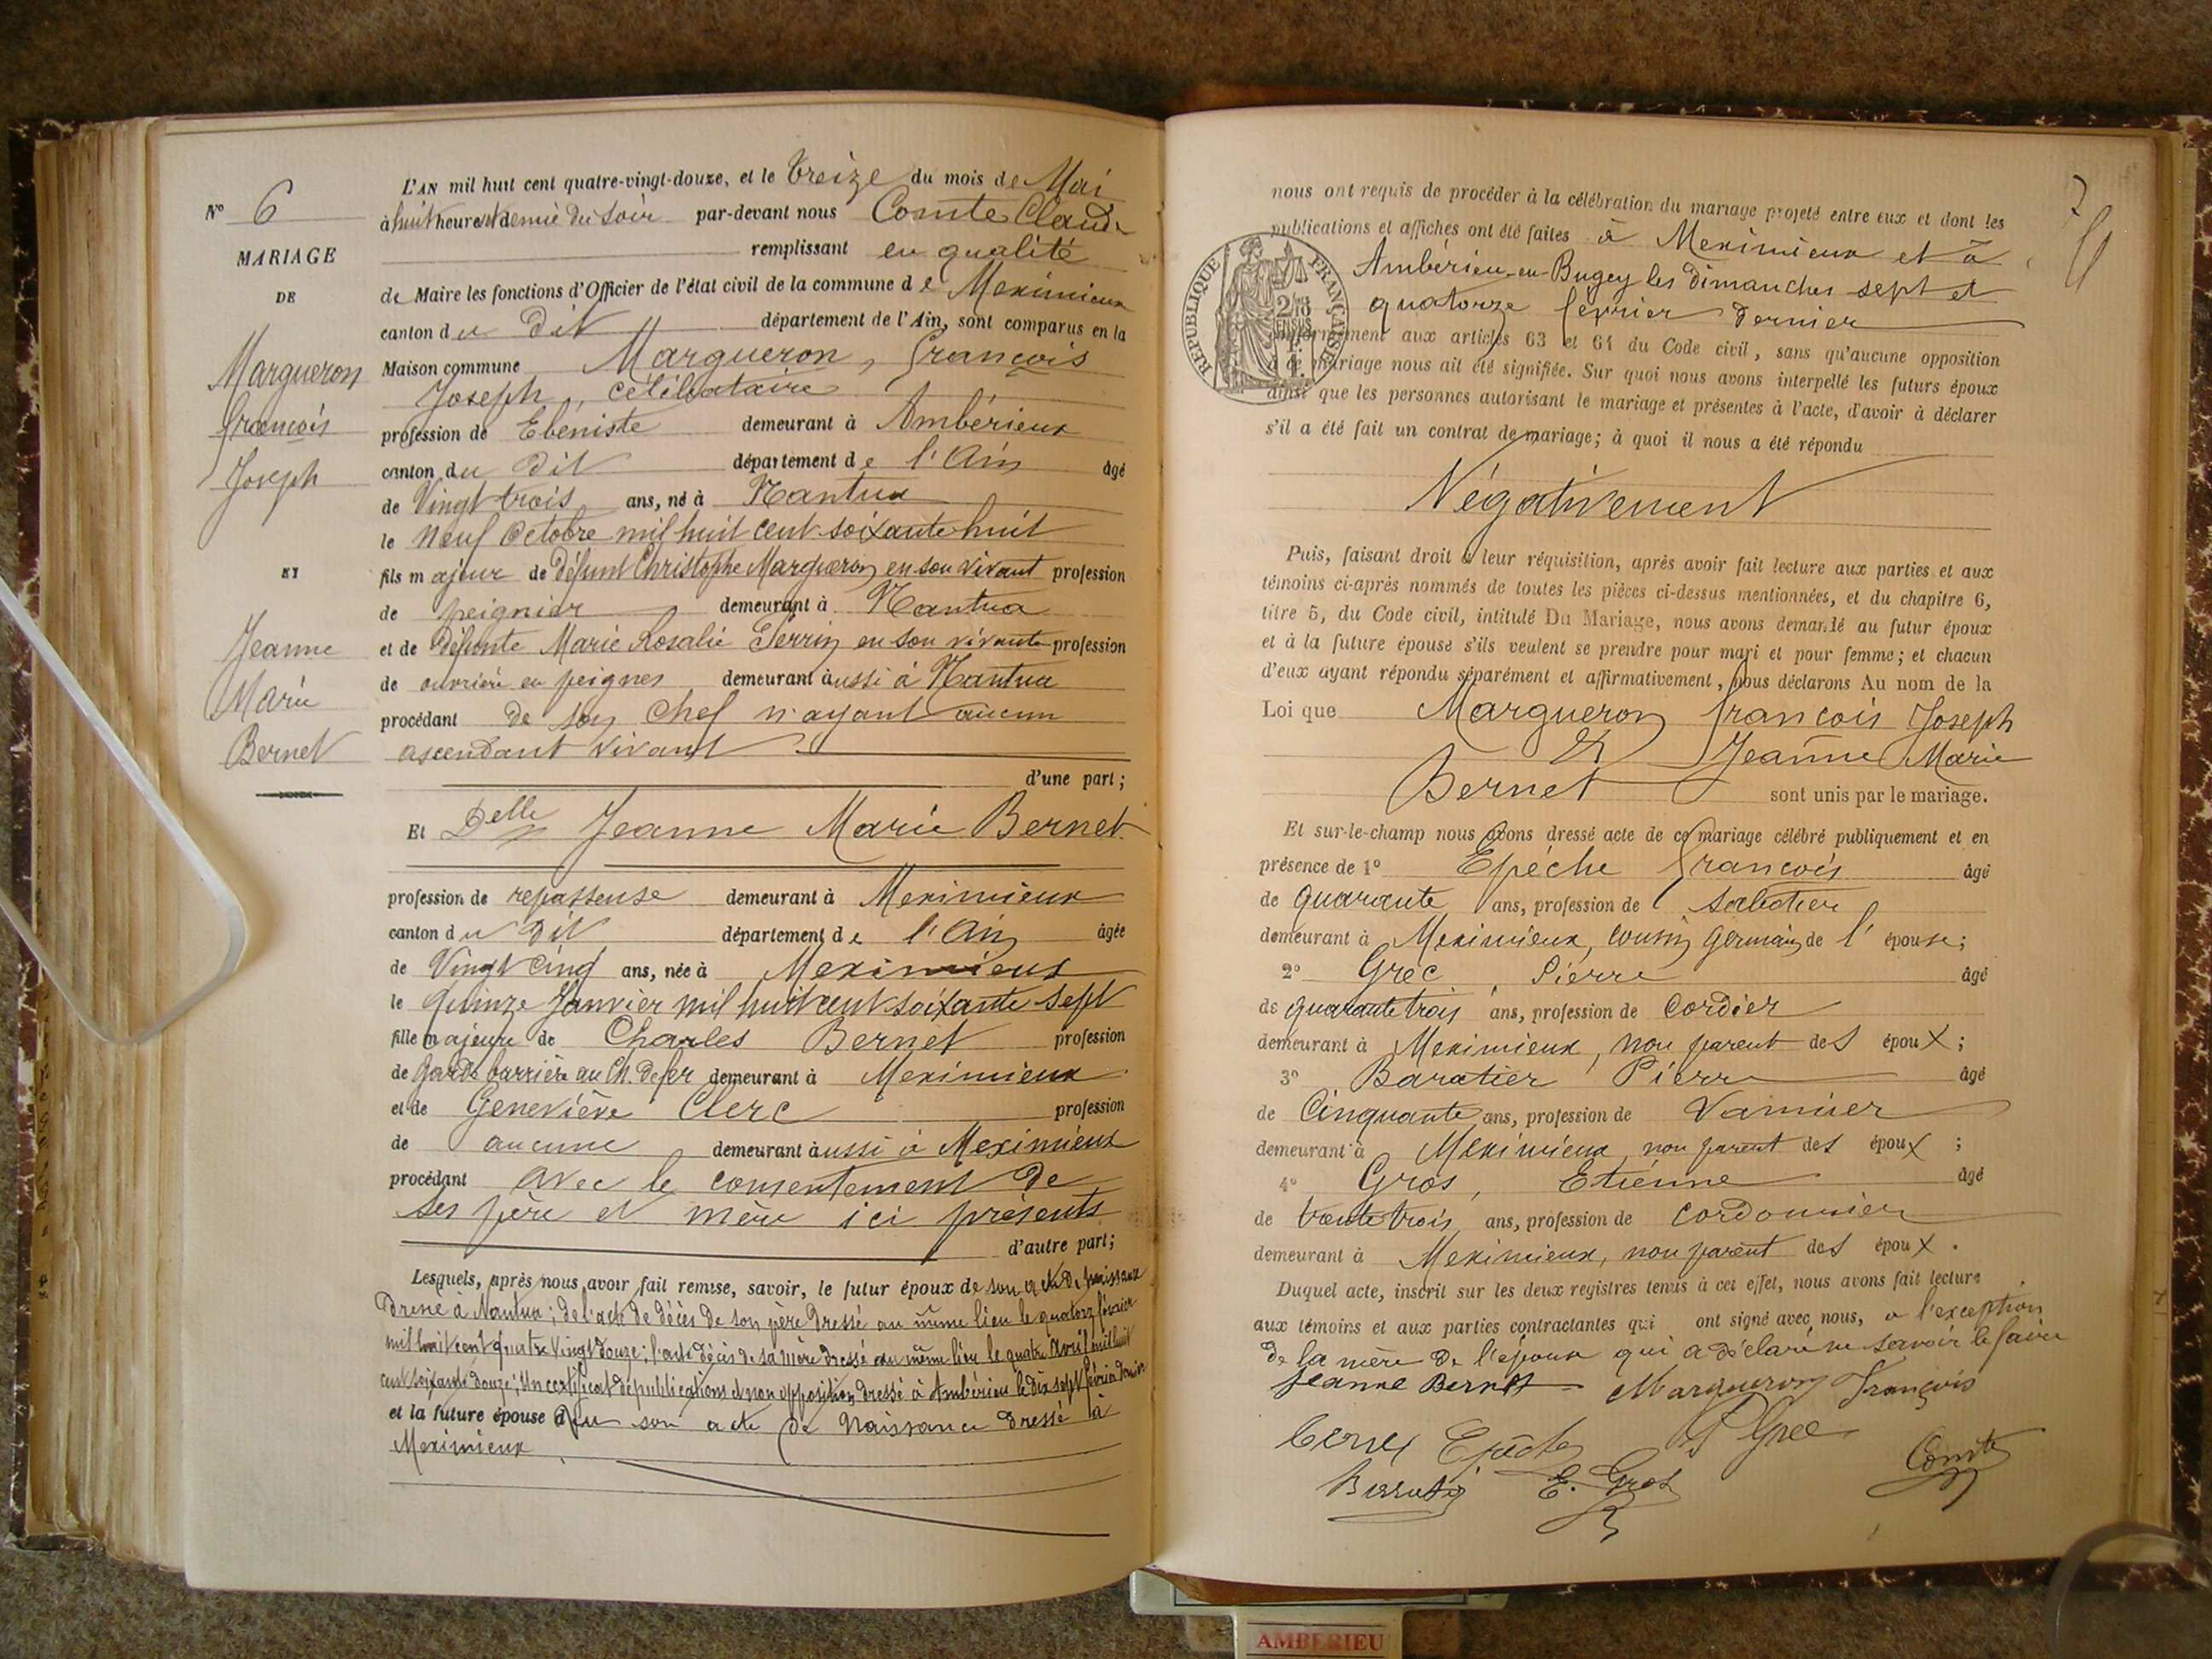 L'AN mil huit cent quatre-vingt-douze, et le treize du mois de Mai
N° 6
à huit heures et demie du soir par-devant nous Comte Claude
MARIAGE
remplissant en qualité
DE
de Maire les fonctions d'Officier de l'état civil de la commune de Meximieux
canton du dit département de l'Ain, sont comparus en la
Margueron
Maison commune Margueron, François
Joseph, célibataire
François
profession de Ebéniste demeurant à Ambérieux
Joseph
canton du dit département de l'Ain âgé
de Vingt trois ans, né à Nantua
le neuf Octobre mil huit cent soixante huit
ET
fils majeur de défunt Christophe Margueron en son vivant profession
de peignier demeurant à Nantua
Jeanne
et de défunte Marie Rosalie Perrin en son vivante profession
de ouvrière en peignes demeurant aussi à Nantua
Marie
procédant de son chef n'ayant aucun
Bernet
ascendant vivant
d'une part;
Et Delle Jeanne Marie Bernet
profession de repasseuse demeurant à Meximieux
canton du dit département de l'Ain âgée
de Vingt cinq ans, née à Meximieux
le quinze Janvier mil huit cent soixante sept
fille majeure de Charles Bernet profession
de garde barrière au Ch. de fer demeurant à Meximieux
et de Geneviève Clerc profession
de aucune demeurant aussi à Meximieux
procédant avec le consentement de
ses père et mère ici présents
d'autre part;
Lesquels, après nous avoir fait remise, savoir, le futur époux de son acte de naissance
dressé à Nantua; de l'acte de décès de son père dressé au même lieu le quatorze février
mil huit cent quatre vingt douze; l'acte décès de sa mère dressé au même lieu le quatre Avril mil huit
cent soixante douze; Un certificat de publications et non opposition dressé à Ambérieu le dix sept février dernier
et la future épouse de son acte de Naissance dressé à
Meximieux
7
nous ont requis de procéder à la célébration du mariage projeté entre eux et dont les
publications et affiches ont été faites à Meximieux et à
Ambérieu-en-Bugey les dimanches sept et
quatorze février dernier
RÉPUBLIQUE FRANÇAISE
conformément aux articles 63 et 64 du Code civil, sans qu'aucune opposition
à ce mariage nous ait été signifiée. Sur quoi nous avons interpellé les futurs époux
ainsi que les personnes autorisant le mariage et présentes à l'acte, d'avoir à déclarer
s'il a été fait un contrat de mariage; à quoi il nous a été répondu
Négativement
Puis, faisant droit à leur réquisition, après avoir fait lecture aux parties et aux
témoins ci-après nommés de toutes les pièces ci-dessus mentionnées, et du chapitre 6,
titre 5, du Code civil, intitulé Du Mariage, nous avons demandé au futur époux
et à la future épouse s'ils veulent se prendre pour mari et pour femme; et chacun
d'eux ayant répondu séparément et affirmativement, nous déclarons Au nom de la
Loi que Margueron François Joseph
Et Jeanne Marie
Bernet sont unis par le mariage.
Et sur-le-champ nous avons dressé acte de ce mariage célébré publiquement et en
présence de 1° Epéche François âgé
de quarante ans, profession de sabotier
demeurant à Meximieux, cousin germain de l'épouse;
2° Grec, Pierre âgé
de quarante trois ans, profession de Cordier
demeurant à Meximieux, non parent des époux;
3° Baratier Pierre âgé
de Cinquante ans, profession de Vannier
demeurant à Meximieux non parent des époux;
4° Gros, Etienne âgé
de trente trois ans, profession de cordonnier
demeurant à Meximieux, non parent des époux.
Duquel acte, inscrit sur les deux registres tenus à cet effet, nous avons fait lecture
aux témoins et aux parties contractantes qui ont signé avec nous, à l'exception
de la mère de l'épouse qui a déclaré ne savoir le faire
Jeanne Bernet Margueron François
Epéche P Grec
Comte
E. Gros
AMBERIEU